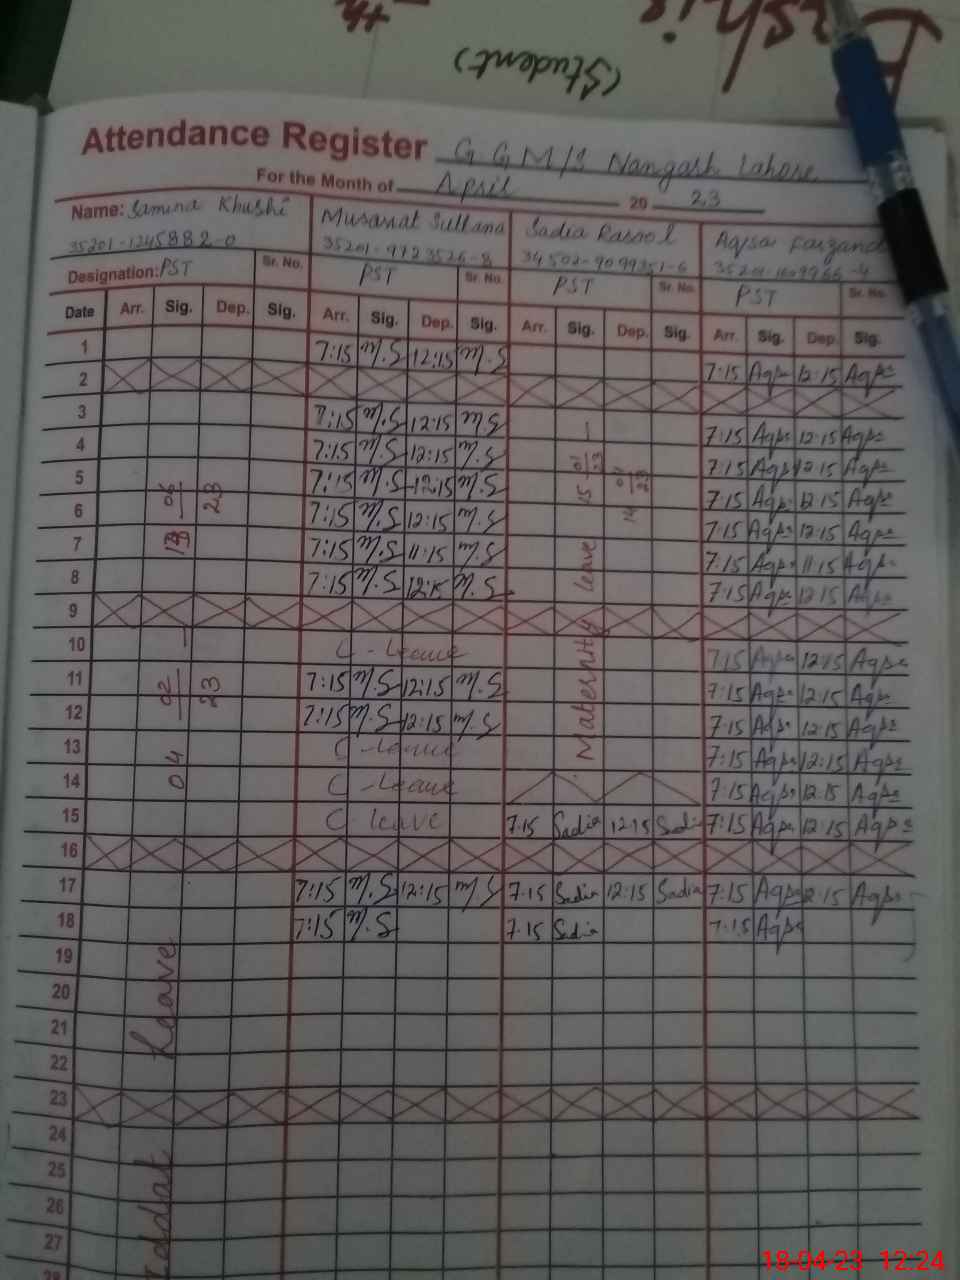 (Student)
Attendance Register G G M/S Nangash Lahore
For the Month of April 20 23
Name: Samina Khushi Musarat Sultana Sadia Rasool Aqsa Farzand
35201-1245882-0 35201-9723526-8 34502-9099351-6
Designation: PST Sr. No. PST Sr. No. PST Sr. No. PST Sr. No.
Date Arr. Sig. Dep. Sig. Arr. Sig. Dep. Sig. Arr. Sig. Dep. Sig. Arr. Sig. Dep. Sig.
1 7:15 M.S 12:15 M.S 7:15 Aqsa 12:15 Aqsa
2
3 7:15 M.S 12:15 M.S 7:15 Aqsa 12:15 Aqsa
4 7:15 M.S 12:15 M.S 7:15 Aqsa 12:15 Aqsa
5 7:15 M.S 12:15 M.S 7:15 Aqsa 12:15 Aqsa
6 7:15 M.S 12:15 M.S 7:15 Aqsa 12:15 Aqsa
7 7:15 M.S 11:15 M.S 7:15 Aqsa 11:15 Aqsa
8 7:15 M.S 12:15 M.S 7:15 Aqsa 12:15 Aqsa
9
10 C-leave 7:15 Aqsa 12:15 Aqsa
11 7:15 M.S 12:15 M.S 7:15 Aqsa 12:15 Aqsa
12 7:15 M.S 12:15 M.S 7:15 Aqsa 12:15 Aqsa
13 C-leave 7:15 Aqsa 12:15 Aqsa
14 C-leave 7:15 Aqsa 12:15 Aqsa
15 C leave 7:15 Sadia 12:15 Sadia 7:15 Aqsa 12:15 Aqsa
16
17 7:15 M.S 12:15 M.S 7:15 Sadia 12:15 Sadia 7:15 Aqsa 12:15 Aqsa
18 7:15 M.S 7:15 Sadia 7:15 Aqsa
19
20
21
22
23
24
25
26
27
28
Iddat Leave 04 02/23
06/23
Maternity leave 15
18-04-23 12:24